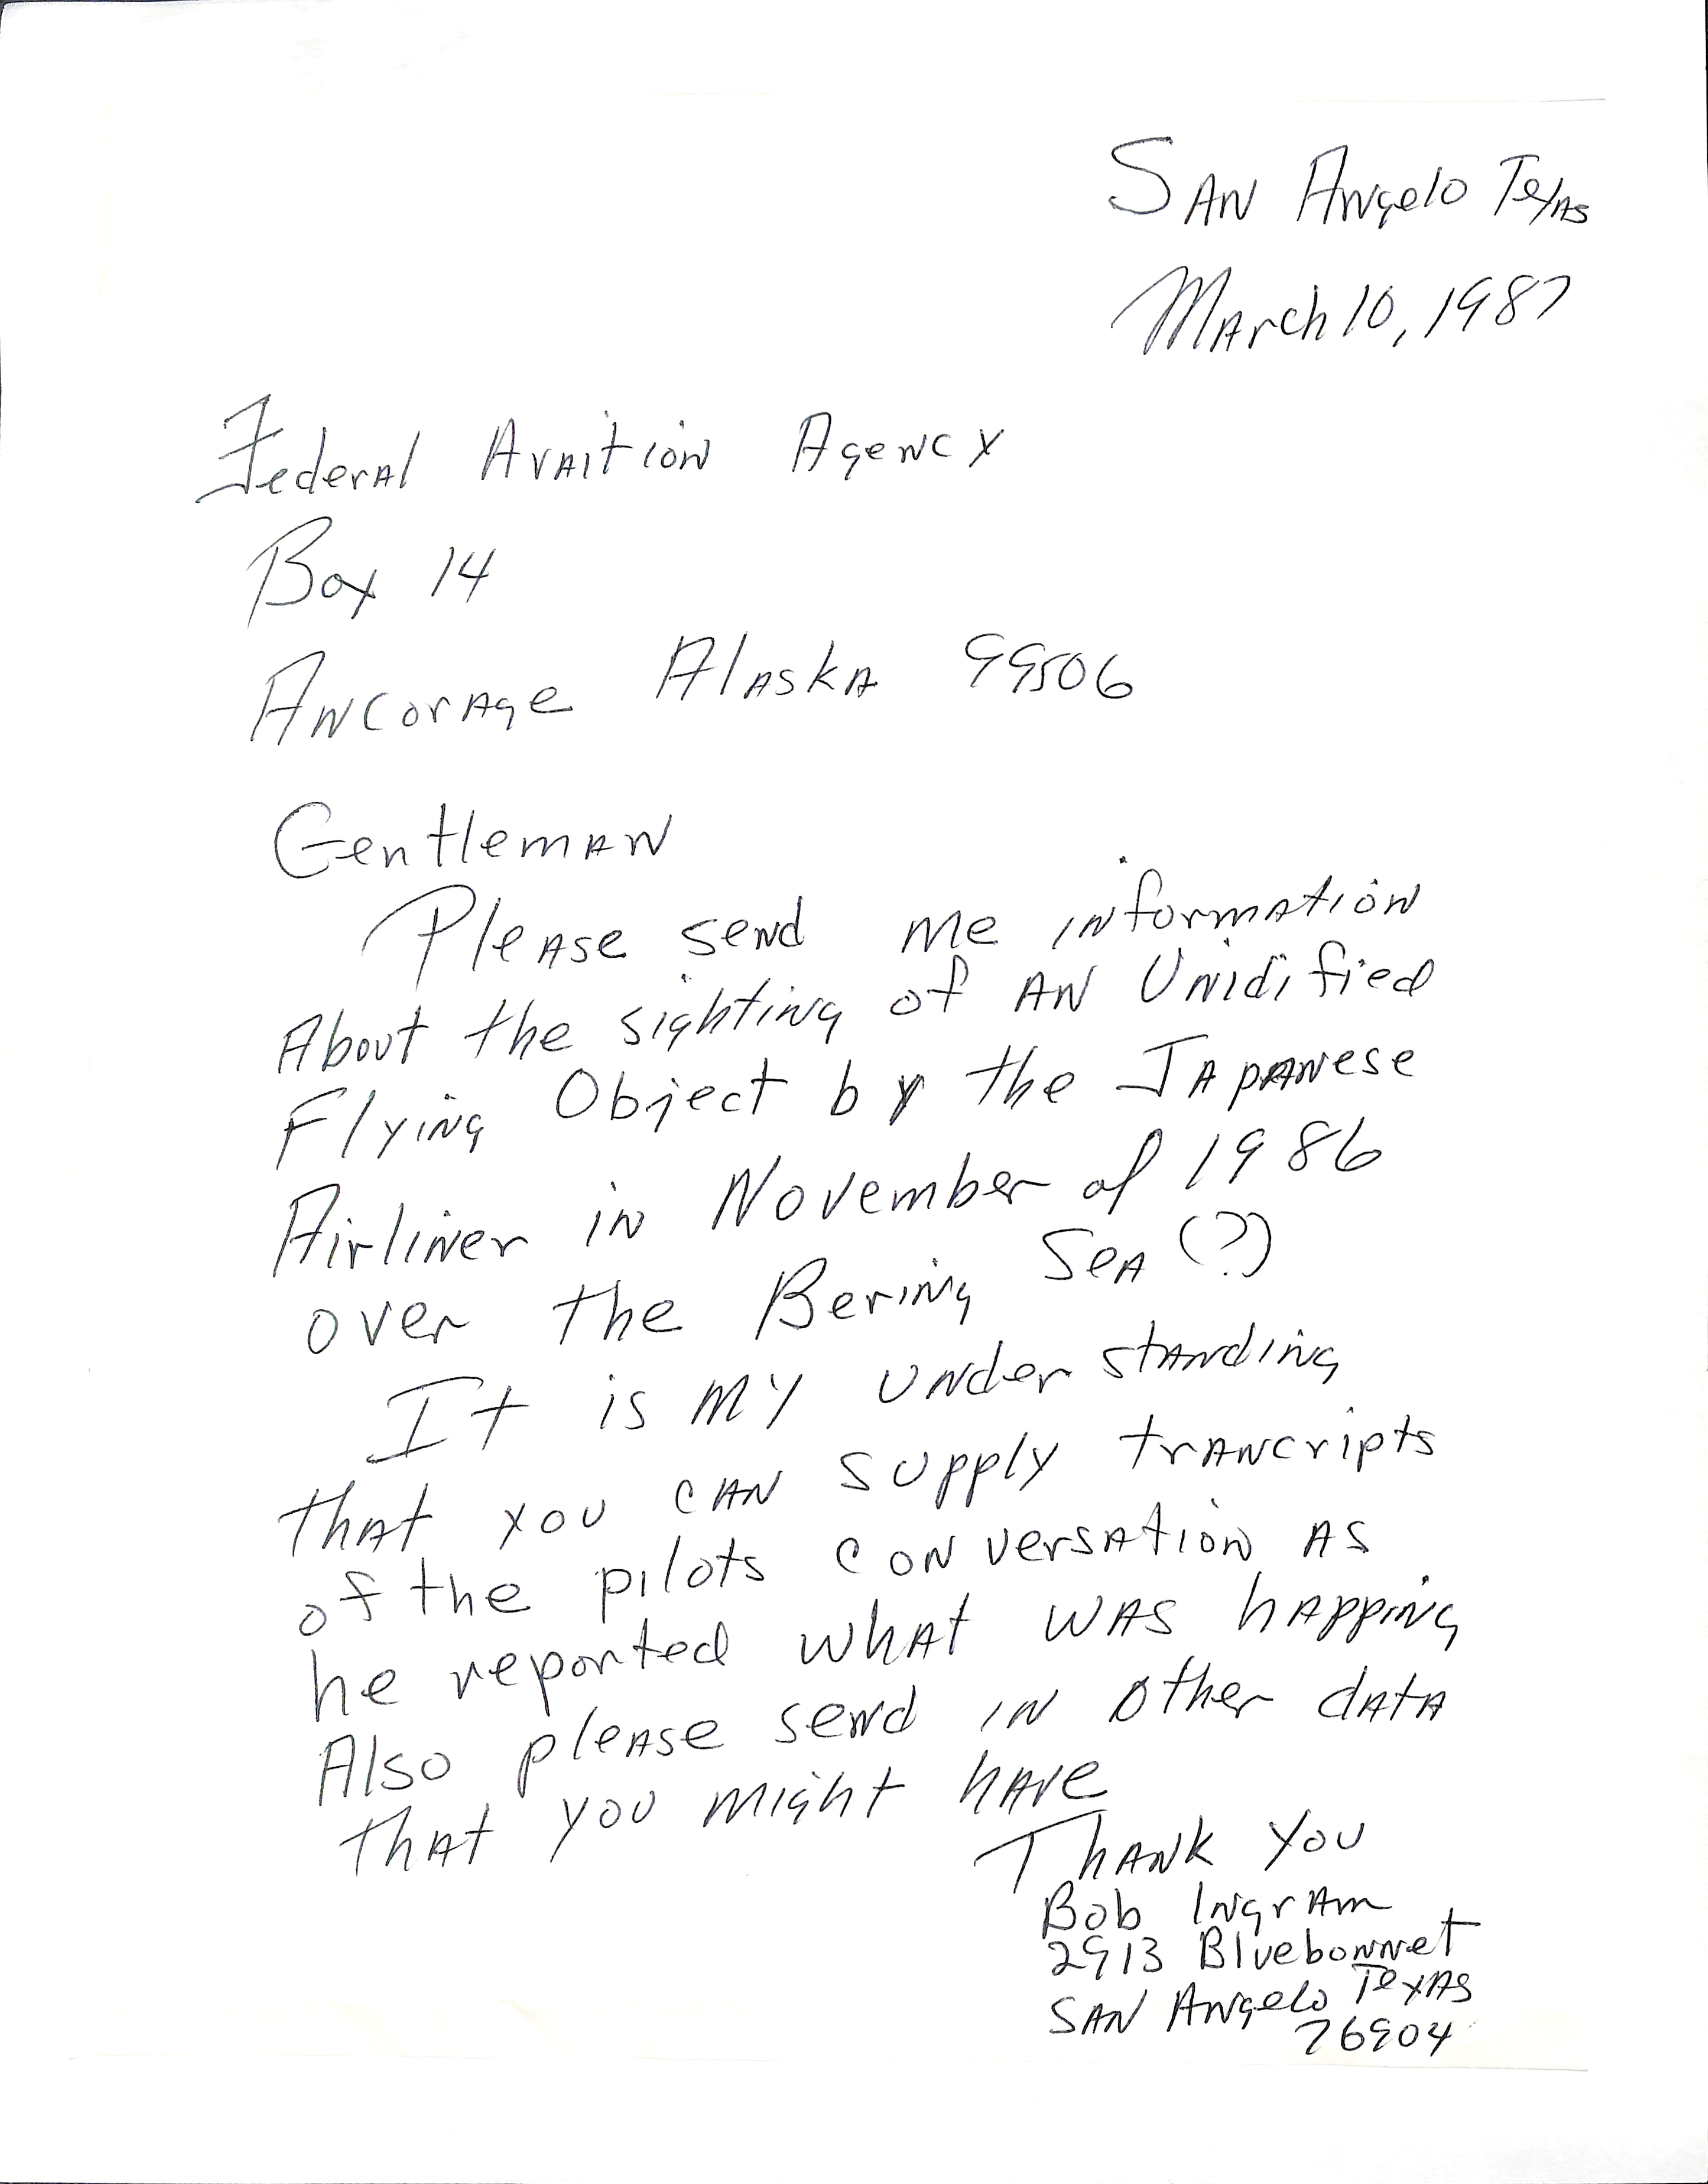 San Angelo Texas
March 10, 1987
Federal Avaition Agency
Box 14
Ancorage Alaska 99506
Gentleman
Please send me information
About the sighting of an Unidified
Flying Object by the Japanese
Airliner in November of 1986
over the Bering Sea (?)
It is my understanding
that you can supply trancripts
of the pilots conversation as
he reported what was happing
Also please send in other data
that you might have
Thank you
Bob Ingram
2913 Bluebonnet
San Angelo Texas
76904